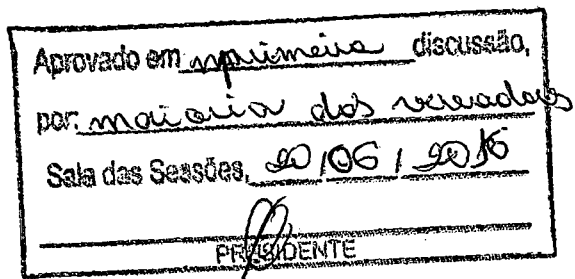 Aprovado em primeira discussão,
por: maioria dos vereadores
Sala das Sessões, 20/06/2016
PRESIDENTE